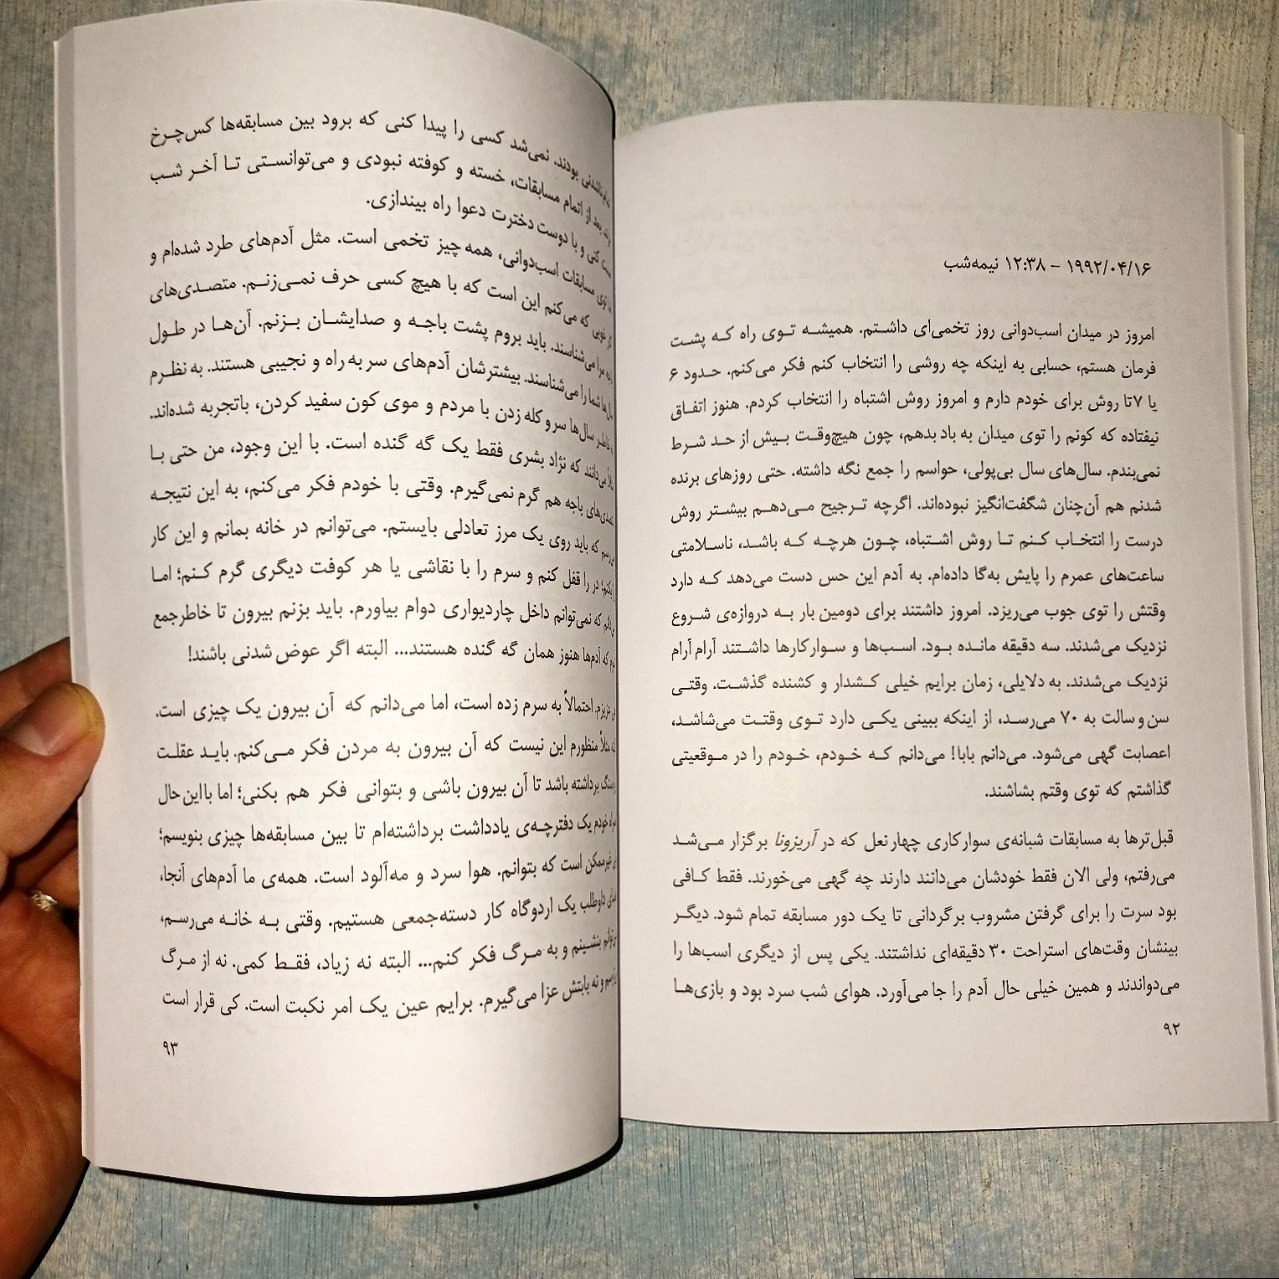 ۱۹۹۲/۰۴/۱۶ – ۱۲:۳۸ نیمه‌شب
امروز در میدان اسب‌دوانی روز تخمی‌ای داشتم. همیشه توی راه که پشت
فرمان هستم، حسابی به اینکه چه روشی را انتخاب کنم فکر می‌کنم. حدود ۶
یا ۷تا روش برای خودم دارم و امروز روش اشتباه را انتخاب کردم. هنوز اتفاق
نیفتاده که کونم را توی میدان به باد بدهم، چون هیچ‌وقت بیش از حد شرط
نمی‌بندم. سال‌های سال بی‌پولی، حواسم را جمع نگه داشته. حتی روزهای برنده
شدنم هم آن‌چنان شگفت‌انگیز نبوده‌اند. اگرچه ترجیح می‌دهم بیشتر روش
درست را انتخاب کنم تا روش اشتباه، چون هرچه که باشد، ناسلامتی
ساعت‌های عمرم را پایش به‌گا داده‌ام. به آدم این حس دست می‌دهد که دارد
وقتش را توی جوب می‌ریزد. امروز داشتند برای دومین بار به دروازه‌ی شروع
نزدیک می‌شدند. سه دقیقه مانده بود. اسب‌ها و سوارکارها داشتند آرام آرام
نزدیک می‌شدند. به دلایلی، زمان برایم خیلی کشدار و کشنده گذشت. وقتی
سن‌وسالت به ۷۰ می‌رسد، از اینکه ببینی یکی دارد توی وقتت می‌شاشد،
اعصابت گهی می‌شود. می‌دانم بابا! می‌دانم که خودم، خودم را در موقعیتی
گذاشتم که توی وقتم بشاشند.
قبل‌ترها به مسابقات شبانه‌ی سوارکاری چهارنعل که در آریزونا برگزار می‌شد
می‌رفتم، ولی الان فقط خودشان می‌دانند دارند چه گهی می‌خورند. فقط کافی
بود سرت را برای گرفتن مشروب برگردانی تا یک دور مسابقه تمام شود. دیگر
بینشان وقت‌های استراحت ۳۰ دقیقه‌ای نداشتند. یکی پس از دیگری اسب‌ها را
می‌دواندند و همین خیلی حال آدم را جا می‌آورد. هوای شب سرد بود و بازی‌ها
۹۲
بودند. نمی‌شد کسی را پیدا کنی که برود بین مسابقه‌ها کس‌چرخ
بعد از اتمام مسابقات، خسته و کوفته نبودی و می‌توانستی تا آخر شب
کنی و با دوست دخترت دعوا راه بیندازی.
توی مسابقات اسب‌دوانی، همه چیز تخمی است. مثل آدم‌های طرد شده‌ام و
خوبی که می‌کنم این است که با هیچ کسی حرف نمی‌زنم. متصدی‌های
مرا می‌شناسند. باید بروم پشت باجه و صدایشان بزنم. آن‌ها در طول
شما را می‌شناسند. بیشترشان آدم‌های سربه‌راه و نجیبی هستند. به نظرم
سال‌ها سروکله زدن با مردم و موی کون سفید کردن، باتجربه شده‌اند.
می‌دانند که نژاد بشری فقط یک گه گنده است. با این وجود، من حتی با
باجه هم گرم نمی‌گیرم. وقتی با خودم فکر می‌کنم، به این نتیجه
که باید روی یک مرز تعادلی بایستم. می‌توانم در خانه بمانم و این کار
در را قفل کنم و سرم را با نقاشی یا هر کوفت دیگری گرم کنم؛ اما
که نمی‌توانم داخل چاردیواری دوام بیاورم. باید بزنم بیرون تا خاطرجمع
که آدم‌ها هنوز همان گه گنده هستند... البته اگر عوض شدنی باشند!
عزیزم، احتمالاً به سرم زده است، اما می‌دانم که آن بیرون یک چیزی است.
منظورم این نیست که آن بیرون به مردن فکر می‌کنم. باید عقلت
برداشته باشد تا آن بیرون باشی و بتوانی فکر هم بکنی؛ اما بااین‌حال
خودم یک دفترچه‌ی یادداشت برداشته‌ام تا بین مسابقه‌ها چیزی بنویسم؛
غیرممکن است که بتوانم. هوا سرد و مه‌آلود است. همه‌ی ما آدم‌های آنجا،
داوطلب یک اردوگاه کار دسته‌جمعی هستیم. وقتی به خانه می‌رسم،
بنشینم و به مرگ فکر کنم... البته نه زیاد، فقط کمی. نه از مرگ
و نه بابتش عزا می‌گیرم. برایم عین یک امر نکبت است. کی قرار است
۹۳